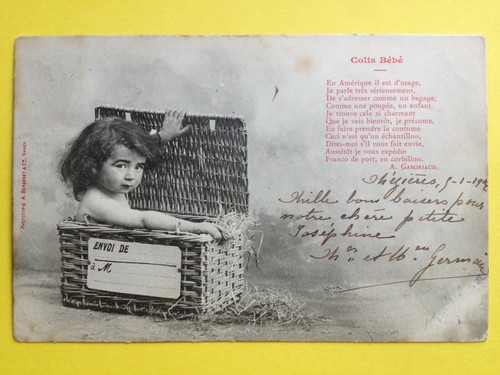 Colis Bébé
En Amérique il est d'usage,
Je parle très sérieusement,
De s'adresser comme un bagage,
Comme une poupée, un enfant.
Je trouve cela si charmant
Que je vais bientôt, je présume,
En faire prendre la coutume.
Ceci n'est qu'un échantillon,
Dites-moi s'il vous fait envie,
Aussitôt je vous expédie
Franco de port, en corbillon.
A. GABORIAUD.
Mézières, 5-1-190
Mille bons baisers pour
notre chère petite
Joséphine
et Germain
ENVOI DE
à M
A. BERGERET & Cie, NANCY